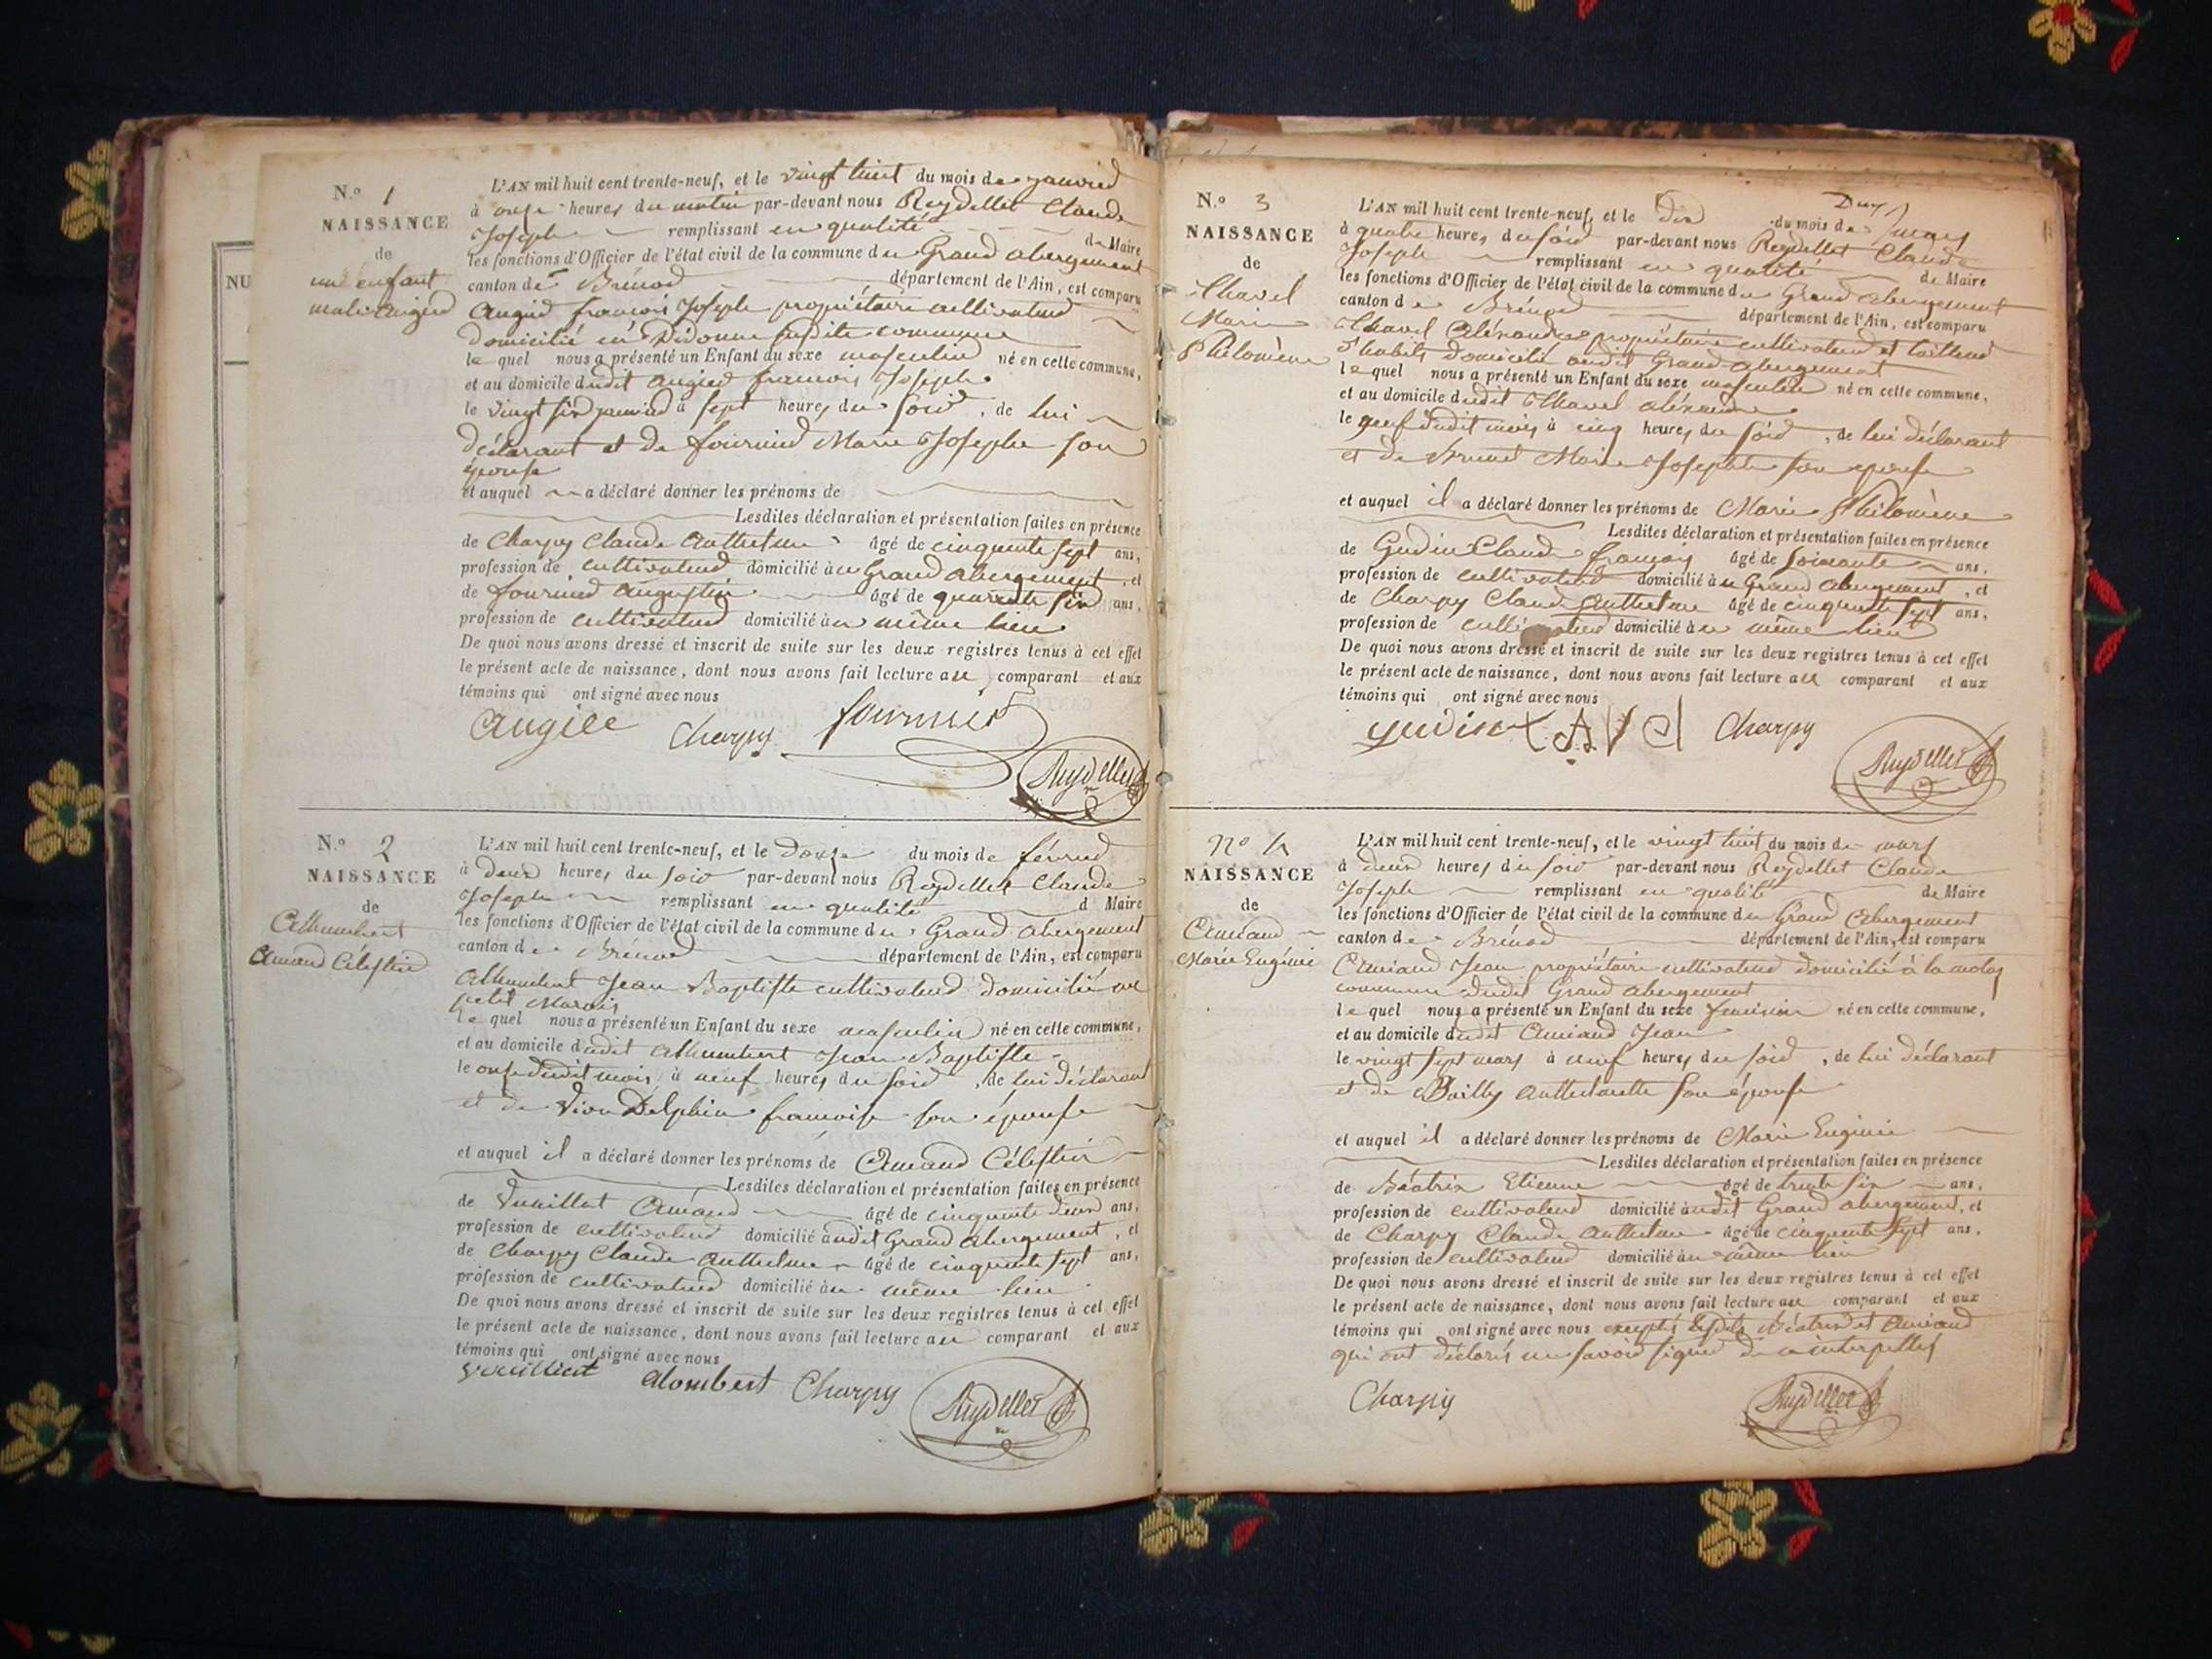 N.º 1
NAISSANCE
de
un enfant
male Augier
L'AN mil huit cent trente-neuf, et le vingt huit du mois de janvier
à onze heures du matin par-devant nous Reydellet Claude
Joseph remplissant en qualité de Maire
les fonctions d'Officier de l'état civil de la commune du Grand abergement
canton de Brénod département de l'Ain, est comparu
Augier françois Joseph propriétaire cultivateur
domicilié en Didonne susdite commune
le quel nous a présenté un Enfant du sexe masculin né en cette commune,
et au domicile dudit augier francois Joseph
le vingt six janvier à sept heures du soir, de lui
déclarant et de fournier Marie Josephe son
épouse
et auquel a déclaré donner les prénoms de
Lesdites déclaration et présentation faites en présence
de Charpy Claude Anthelme âgé de cinquante sept ans,
profession de cultivateur domicilié au Grand abergement, et
de fournier Augustin âgé de quarante six ans,
profession de cultivateur domicilié au même lieu
De quoi nous avons dressé et inscrit de suite sur les deux registres tenus à cet effet
le présent acte de naissance, dont nous avons fait lecture au comparant et aux
témoins qui ont signé avec nous
Augier Charpy fournier
Reydellet
N.º 2
NAISSANCE
de
Alhumbert
Amand Célestin
L'AN mil huit cent trente-neuf, et le douze du mois de février
à deux heures du soir par-devant nous Reydellet Claude
Joseph remplissant en qualité d Maire
les fonctions d'Officier de l'état civil de la commune du Grand abergement
canton de Brénod département de l'Ain, est comparu
Alhumbert Jean Baptiste cultivateur domicilié au
petit Marais
le quel nous a présenté un Enfant du sexe masculin né en cette commune,
et au domicile dudit Alhumbert Jean Baptiste
le onze dudit mois à neuf heures du soir, de lui déclarant
et de Vion Delphine françoise son épouse
et auquel il a déclaré donner les prénoms de Amand Célestin
Lesdites déclaration et présentation faites en présence
de Vuaillat Amand âgé de cinquante deux ans,
profession de cultivateur domicilié audit Grand abergement, et
de Charpy Claude Anthelme âgé de cinquante sept ans,
profession de cultivateur domicilié au même lieu
De quoi nous avons dressé et inscrit de suite sur les deux registres tenus à cet effet
le présent acte de naissance, dont nous avons fait lecture au comparant et aux
témoins qui ont signé avec nous
alombert Charpy Reydellet
N.º 3
NAISSANCE
de
Chavel
Marie
Philomène
L'AN mil huit cent trente-neuf, et le dix du mois de mars
à quatre heures du soir par-devant nous Reydellet Claude
Joseph remplissant en qualité de Maire
les fonctions d'Officier de l'état civil de la commune du Grand abergement
canton de Brénod département de l'Ain, est comparu
Chavel Aléxandre propriétaire cultivateur et tailleur
d'habits domicilié audit Grand abergement
le quel nous a présenté un Enfant du sexe masculin né en cette commune,
et au domicile dudit Chavel aléxandre
le neuf dudit mois à cinq heures du soir, de lui déclarant
et de Brunet Marie Josephte son épouse
et auquel il a déclaré donner les prénoms de Marie Philomène
Lesdites déclaration et présentation faites en présence
de Gudin Claude françois âgé de soixante ans,
profession de cultivateur domicilié au Grand abergement, et
de Charpy Claude Anthelme âgé de cinquante sept ans,
profession de cultivateur domicilié au même lieu
De quoi nous avons dressé et inscrit de suite sur les deux registres tenus à cet effet
le présent acte de naissance, dont nous avons fait lecture au comparant et aux
témoins qui ont signé avec nous
gudin Charpy
Reydellet
Nº 4
NAISSANCE
de
Amiand
Marie Eugénie
L'AN mil huit cent trente-neuf, et le vingt huit du mois de mars
à deux heures du soir par-devant nous Reydellet Claude
Joseph remplissant en qualité de Maire
les fonctions d'Officier de l'état civil de la commune du Grand Abergement
canton de Brénod département de l'Ain, est comparu
Amiand Jean propriétaire cultivateur domicilié à la
commune dudit Grand abergement
le quel nous a présenté un Enfant du sexe féminin né en cette commune,
et au domicile dudit Amiand Jean
le vingt sept mars à neuf heures du soir, de lui déclarant
et de Bailly Anthelmette son épouse
et auquel il a déclaré donner les prénoms de Marie Eugénie
Lesdites déclaration et présentation faites en présence
de Béatrix Etienne âgé de trente six ans,
profession de cultivateur domicilié audit Grand abergement, et
de Charpy Claude Anthelme âgé de cinquante sept ans,
profession de cultivateur domicilié au même lieu
De quoi nous avons dressé et inscrit de suite sur les deux registres tenus à cet effet
le présent acte de naissance, dont nous avons fait lecture au comparant et aux
témoins qui ont signé avec nous exceptés lesdits Béatrix et Amiand
qui ont déclarés ne savoir signer de ce interpellés
Charpy Reydellet